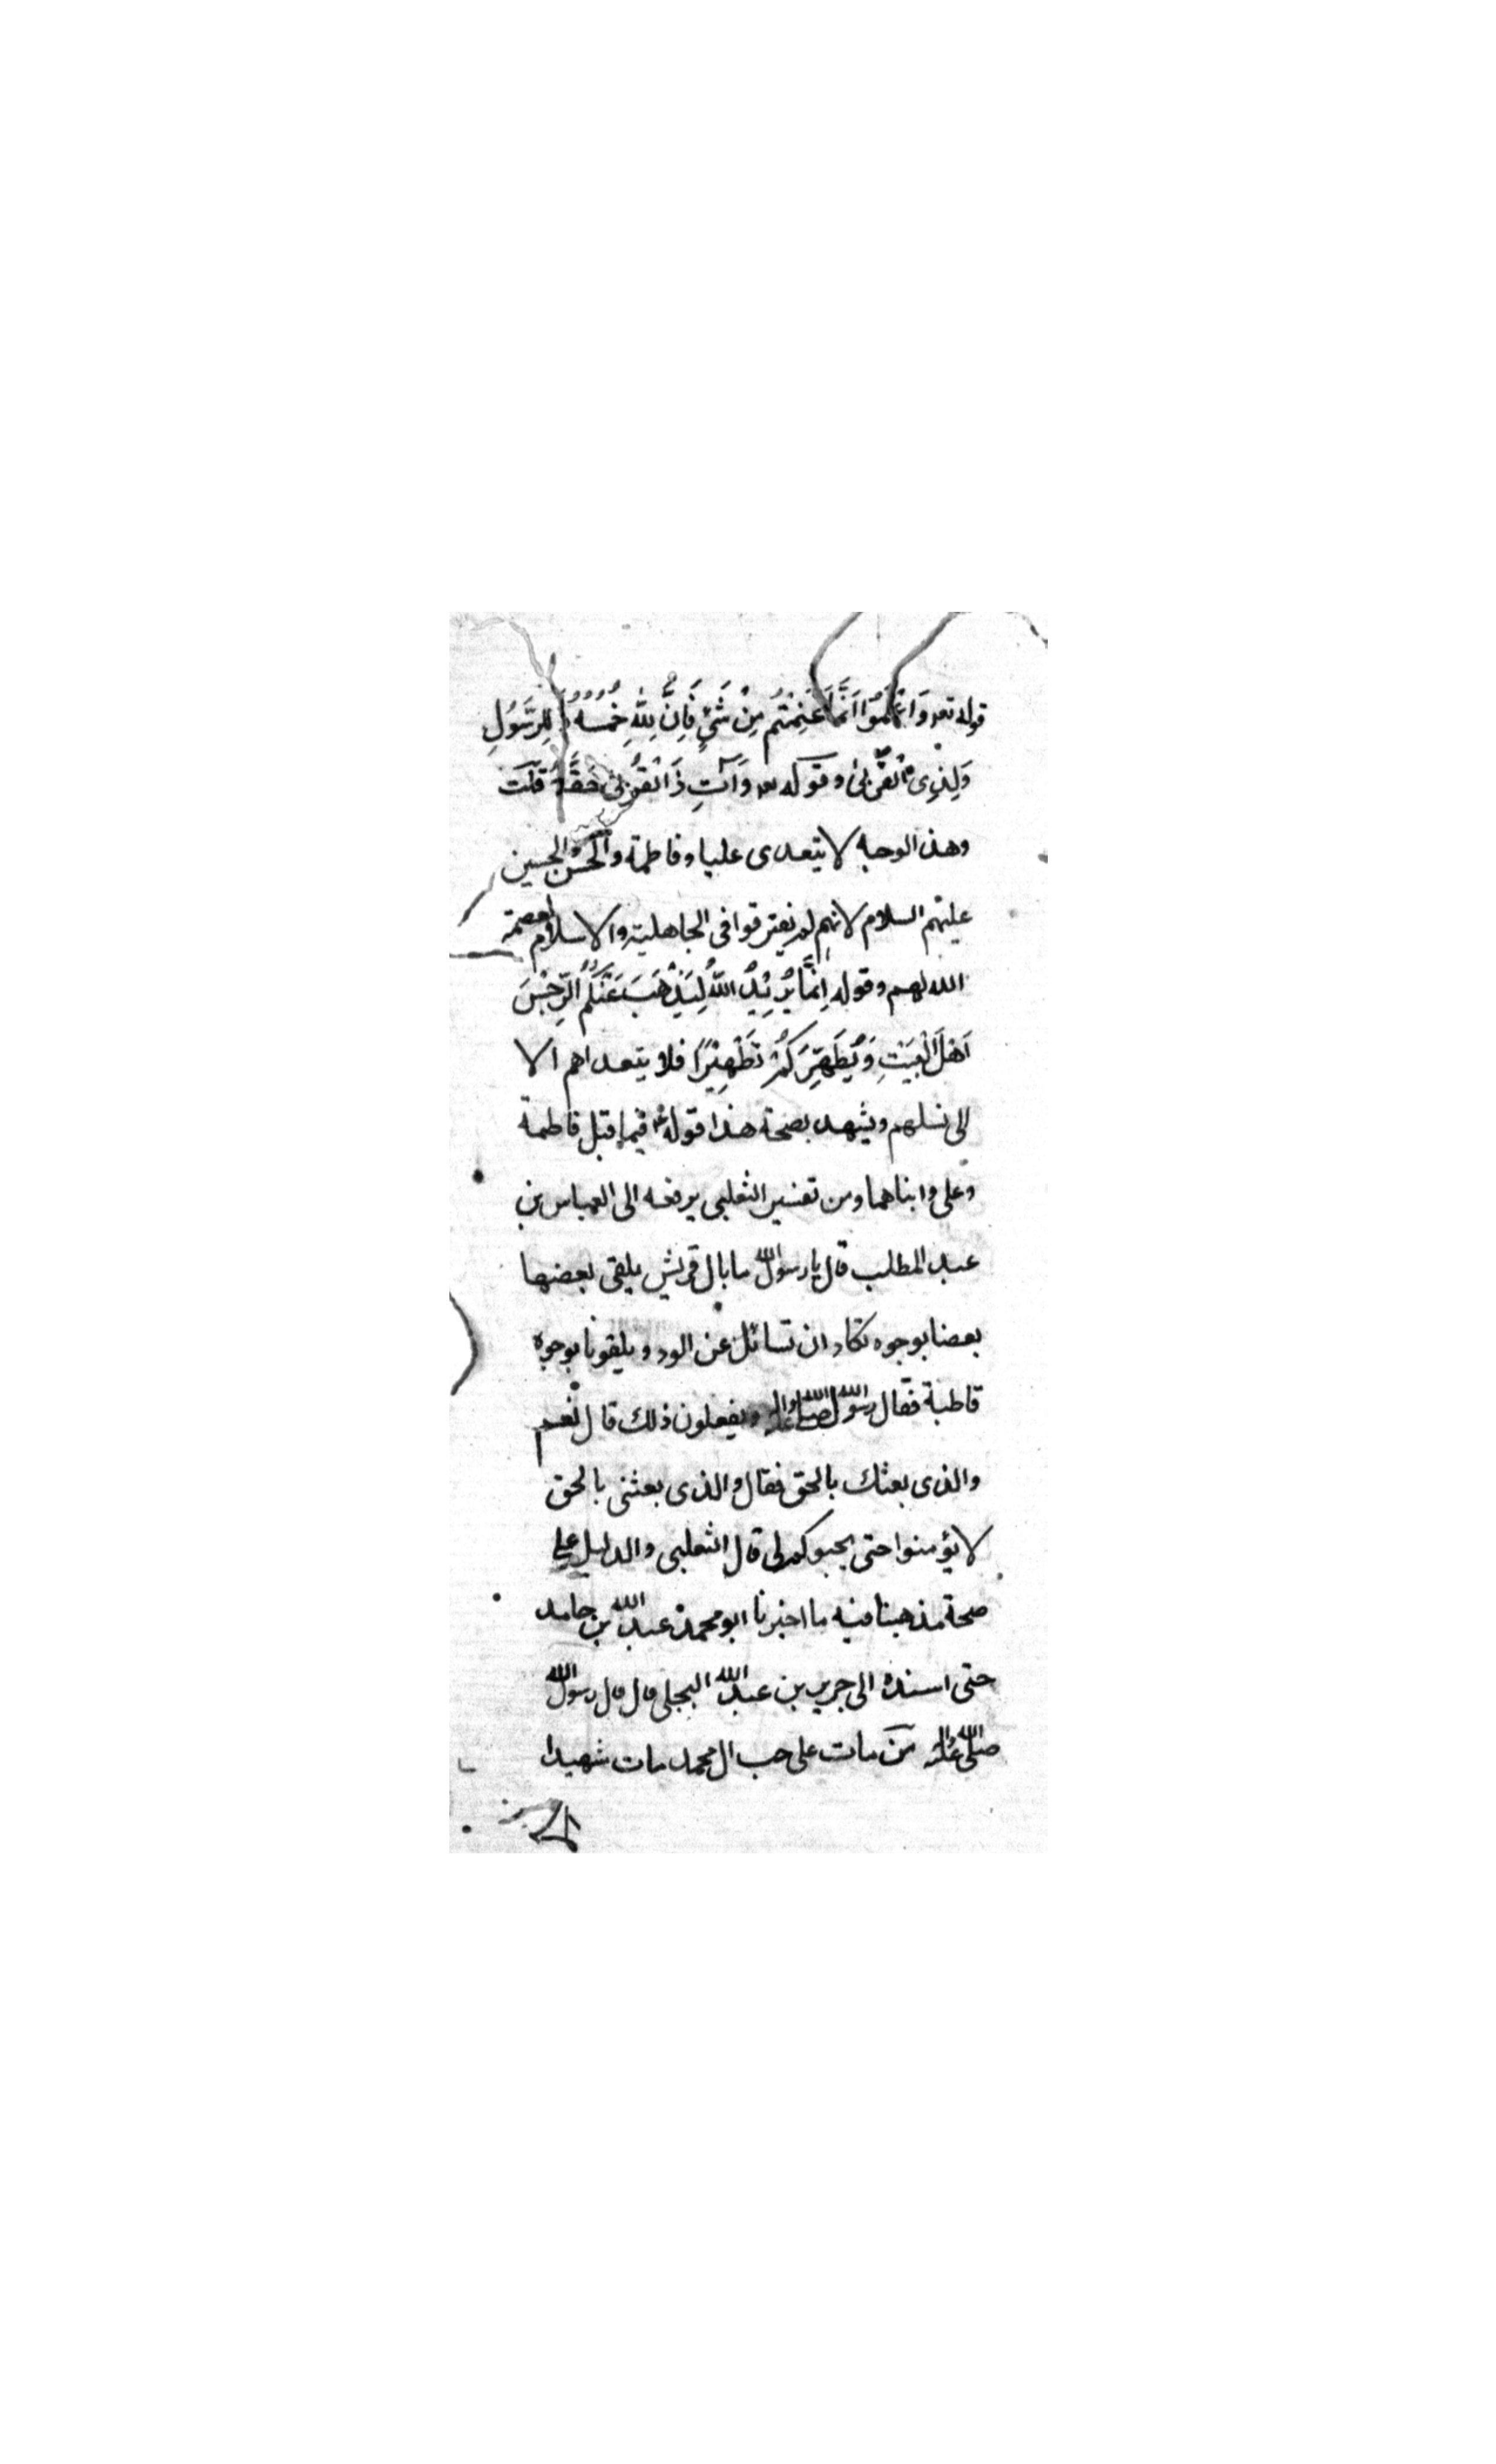 قوله تعه وَاعْلَمُوا اَنَّمَا غَنِمْتُمْ مِنْ شَيْءٍ فَاِنَّ لِلّٰهِ خُمُسَهُ وَ لِلرَّسُولِ
وَلِذِى الْقُرْبىٰ وقوله تعه وَاٰتِ ذَا الْقُرْبىٰ حَقَّهُ قلت
وهذا الوجه لا يتعدى عليا وفاطمة والحسن والحسين
عليهم السلام لانهم لم يفترقوا فى الجاهلية والاسلام لعصمة
الله لهم وقوله اِنَّمَا يُرِيْدُ اللّٰهُ لِيُذْهِبَ عَنْكُمُ الرِّجْسَ
اَهْلَ الْبَيْتِ وَيُطَهِّرَكُمْ تَطْهِيْرًا فلا يتعداهم الا
الى نسلهم ويشهد بصحة هذا قوله فيما قبل فاطمة
وعلى وابناهما ومن تفسير الثعلبى يرفعه الى العباس بن
عبد المطلب قال يا رسول الله ما بال قريش يلقى بعضها
بعضا بوجوه تكاد ان تسائل عن الود و يلقونا بوجوه
قاطبة فقال رسول الله صلى الله عليه واله ويفعلون ذلك قال نعم
والذى بعثك بالحق فقال والذى بعثنى بالحق
لا يؤمنوا حتى يحبوكم لى قال الثعلبى والدليل على
صحة مذهبنا فيه ما اخبرنا ابو محمد عبد الله بن حامد
حتى اسنده الى جرير بن عبد الله البجلى قال قال رسول الله
صلى الله عليه واله من مات على حب ال محمد مات شهيدا